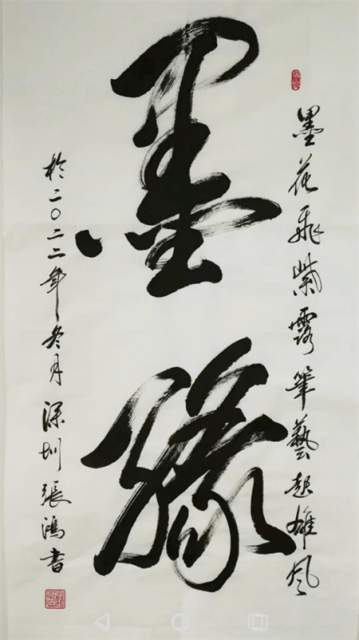 墨花飛紫霧筆藝起雄風
墨緣
於二〇二二年冬月深圳張鴻書